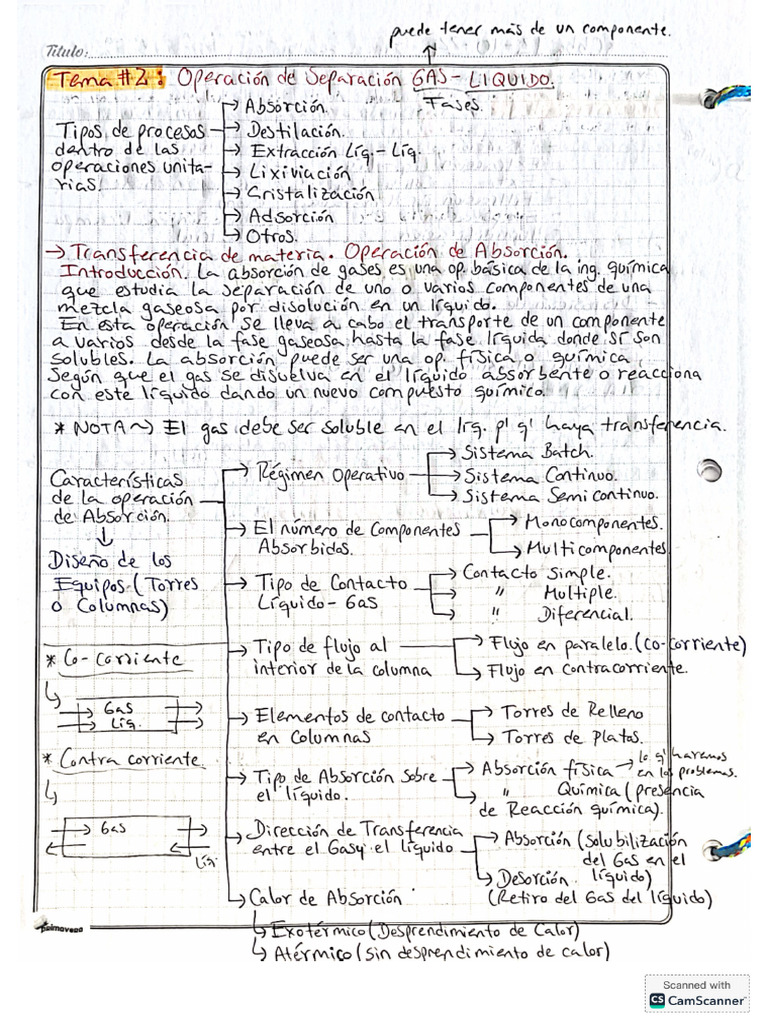 puede tener más de un componente.
Título:
Tema #2: Operación de Separación GAS - LIQUIDO.
Fases.
Tipos de procesos dentro de las operaciones unita-rias:
→ Absorción.
→ Destilación.
→ Extracción Líq-Líq.
→ Lixiviación
→ Cristalización
→ Adsorción
→ Otros.
→ Transferencia de materia. Operación de Absorción.
Introducción. La absorción de gases es una op. básica de la ing. química
que estudia la separación de uno o varios componentes de una
mezcla gaseosa por disolución en un líquido.
En esta operación se lleva a cabo el transporte de un componente
a varios desde la fase gaseosa hasta la fase líquida donde sí son
solubles. La absorción puede ser una op. física o química,
según que el gas se disuelva en el líquido absorbente o reacciona
con este líquido dando un nuevo compuesto químico.
* NOTA ~> El gas debe ser soluble en el líq. p/ q' haya transferencia.
Características
de la operación
de Absorción.
↓
Diseño de los
Equipos (Torres
o Columnas)
→ Régimen Operativo
→ Sistema Batch.
→ Sistema Continuo.
→ Sistema Semi continuo.
→ El número de Componentes
Absorbidos.
→ Monocomponentes.
→ Multicomponentes
→ Tipo de Contacto
Líquido - Gas
→ Contacto Simple.
→ " Multiple.
→ " Diferencial.
→ Tipo de flujo al
interior de la columna
→ Flujo en paralelo. (Co-corriente)
→ Flujo en Contracorriente.
* Co-corriente
→ Gas
→ Líq.
→ Elementos de contacto
en Columnas
→ Torres de Relleno
→ Torres de Platos.
* Contra corriente
→ Gas
Líq
→ Tipo de Absorción sobre
el líquido.
→ Absorción física → lo q' haremos
en los problemas.
→ " Química (presencia
de Reacción química).
→ Dirección de Transferencia
entre el Gas y el líquido
→ Absorción (solubilización
del Gas en el
líquido)
→ Desorción.
(Retiro del Gas del líquido)
→ Calor de Absorción
→ Exotérmico (Desprendimiento de Calor)
→ Atérmico (sin desprendimiento de calor)
primavera
Scanned with
CS CamScanner